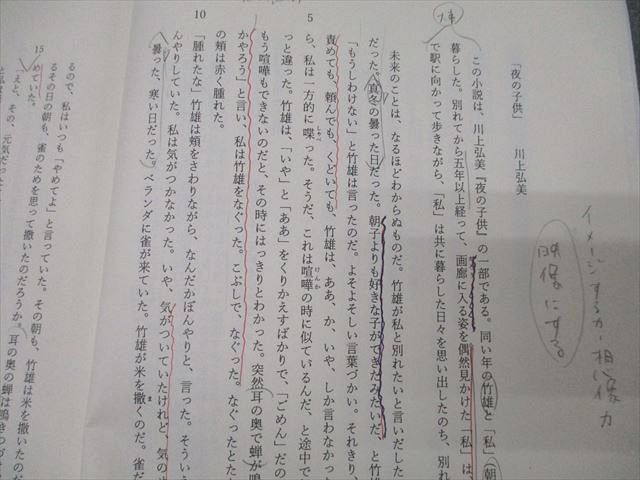 イメージする力・想像力
映像にする
「夜の子供」 川上弘美
この小説は、川上弘美『夜の子供』の一部である。同い年の竹雄と「私」(朝
暮らした。別れてから五年以上経って、画廊に入る姿を偶然見かけた「私」は、
で駅に向かって歩きながら、「私」は共に暮らした日々を思い出したのち、別れ
未来のことは、なるほどわからぬものだ。竹雄が私と別れたいと言いだした
だった。真冬の曇った日だった。朝子よりも好きな子ができたみたいだ、と竹
「もうしわけない」と竹雄は言ったのだ。よそよそしい言葉づかい。それきり、
責めても、頼んでも、くどいても、竹雄は、ああ、か、いや、しか言わなかっ
5
ら、私は一方的に喋った。そうだ、これは喧嘩の時に似ているんだ、と途中で
っと違った。竹雄は、「いや」と「ああ」をくりかえすばかりで、「ごめん」だの
もう喧嘩もできないのだと、その時にはっきりとわかった。突然耳の奥で蝉が鳴
かやろう」と言い、私は竹雄をなぐった。こぶしで、なぐった。なぐったとた
の頬は赤く腫れた。
「腫れたな」竹雄は頬をさわりながら、なんだかぼんやりと、言った。そういう
10
んやりしていた。私は気がつかなかった。いや、気がついていたけれど、気の
曇った、寒い日だった。ベランダに雀が来ていた。竹雄が米を撒くのだ。雀だ
るので、私はいつも「やめてよ」と言っていた。その朝も、竹雄は米を撒いた
るその日の朝も、雀のためを思って撒いたのだろうか。耳の奥の蝉は鳴きつづけ
めていた。
15
「えと、その、元気だった